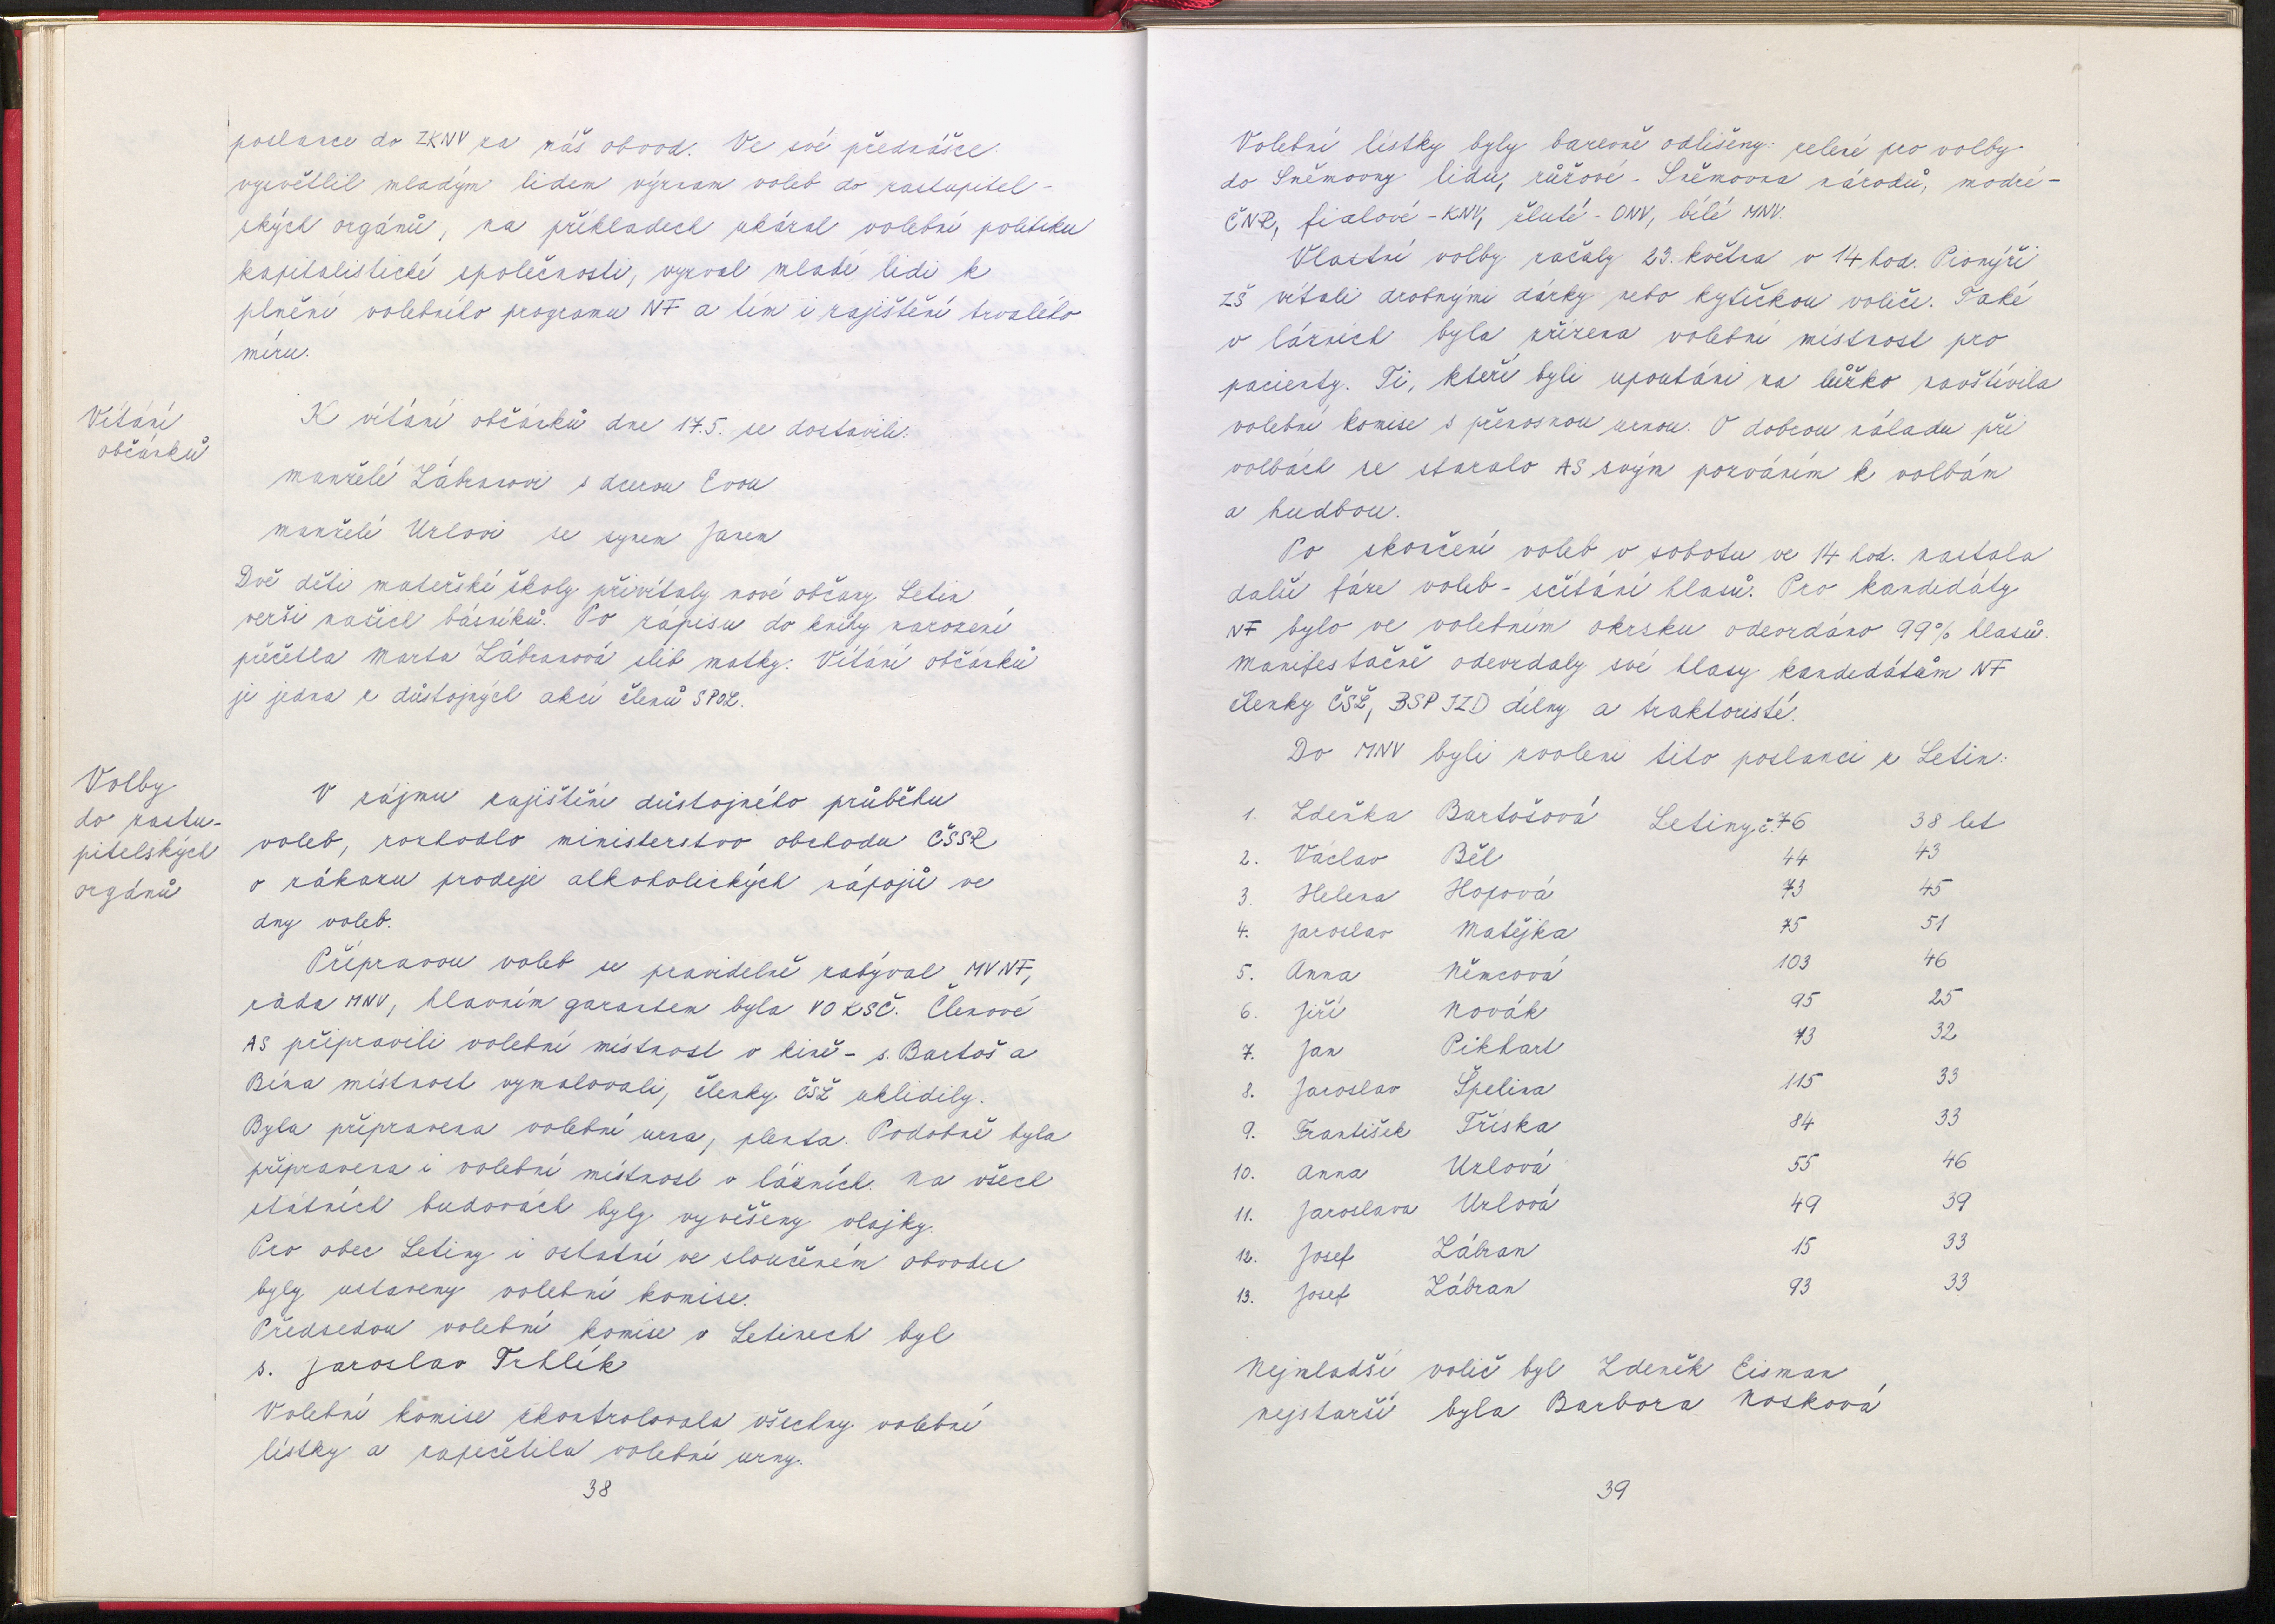 poslance do ZKNV za náš obvod. Ve své přednášce
vysvětlil mladým lidem význam voleb do zastupitel-
ských orgánů, na příkladech ukázal volební politiku
kapitalistické společnosti, vyzval mladé lidi k
plnění volebního programu NF a tím i zajištění trvalého
míru.
Vítání
občánků
K vítání občánků dne 17.5. se dostavili:
manželé Zábranovi s dcerou Evou
manželé Uzlovi se synem Janem
Dvě děti mateřské školy přivítaly nové občany Letin
verši našich básníků. Po zápisu do knihy narození
přečetla Marta Zábranová slib matky. Vítání občánků
je jedna z důstojných akcí členů SPOZ.
Volby
do zastu-
pitelských
orgánů
V zájmu zajištění důstojného průběhu
voleb, rozhodlo ministerstvo obchodu ČSSR
o zákazu prodeje alkoholických nápojů ve
dny voleb.
Přípravou voleb se pravidelně zabýval MVNF,
rada MNV, hlavním garantem byla VO KSČ. Členové
AS připravili volební místnost v kině - s. Bartoš a
Bína místnost vymalovali, členky ČSŽ uklidily.
Byla připravena volební urna, plenta. Podobně byla
připravena i volební místnost v lázních. Na všech
státních budovách byly vyvěšeny vlajky.
Pro obec Letiny i ostatní ve sloučeném obvodu
byly ustaveny volební komise.
Předsedou volební komise v Letinech byl
s. Jaroslav Trhlík
Volební komise zkontrolovala všechny volební
lístky a zapečetila volební urny.
38
Volební lístky byly barevně odlišeny: zelené pro volby
do Sněmovny lidu, růžové - Sněmovna národů, modré -
ČNR, fialové - KNV, žluté - ONV, bílé MNV.
Vlastní volby začaly 23. května v 14 hod. Pionýři
ZŠ vítali drobnými dárky nebo kytičkou voliče. Také
v lázních byla zřízena volební místnost pro
pacienty. Ti, kteří byli upoutáni na lůžko navštívila
volební komise s přenosnou urnou. O dobrou náladu při
volbách se staralo AS svým pozváním k volbám
a hudbou.
Po skončení voleb v sobotu ve 14 hod. nastala
další fáze voleb - sčítání hlasů. Pro kandidáty
NF bylo ve volebním okrsku odevzdáno 99% hlasů.
Manifestačně odevzdaly své hlasy kandidátům NF
členky ČSŽ, BSP JZD dílny a traktoristé.
Do MNV byli zvoleni tito poslanci z Letin:
1. Zdeňka Bartošová Letiny č. 76 38 let
2. Václav Běl 44 43
3. Helena Hopová 73 45
4. Jaroslav Matějka 75 51
5. Anna Němcová 103 46
6. Jiří Novák 95 25
7. Jan Pikhart 73 32
8. Jaroslav Špelina 115 33
9. František Tříska 84 33
10. Anna Uzlová 55 46
11. Jaroslava Uzlová 49 39
12. Josef Zábran 15 33
13. Josef Zábran 93 33
Nejmladší volič byl Zdeněk Eisman
nejstarší byla Barbora Nosková
39